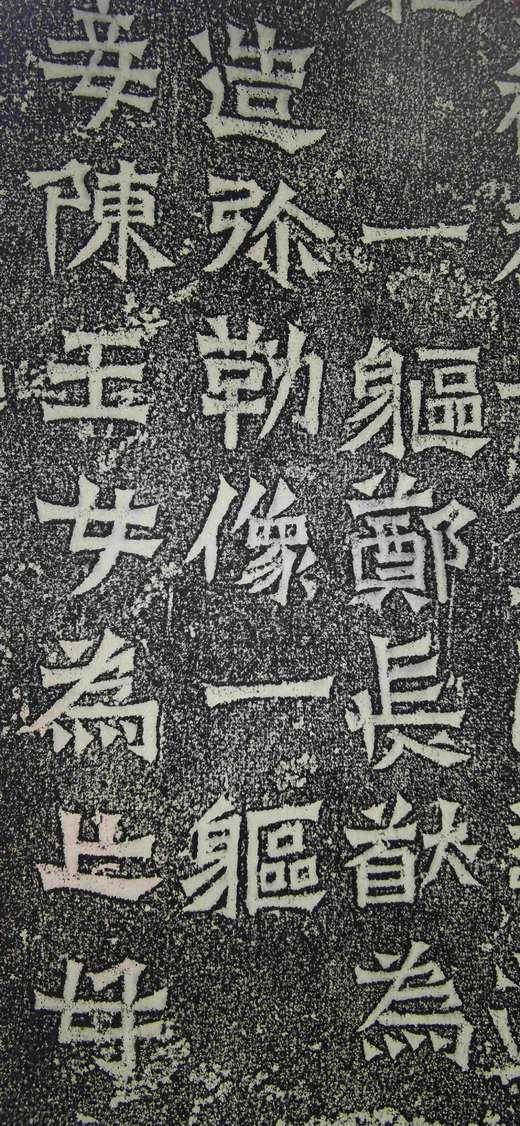 一軀鄭長猷為
造弥勒像一軀
妾陳王女為亡母